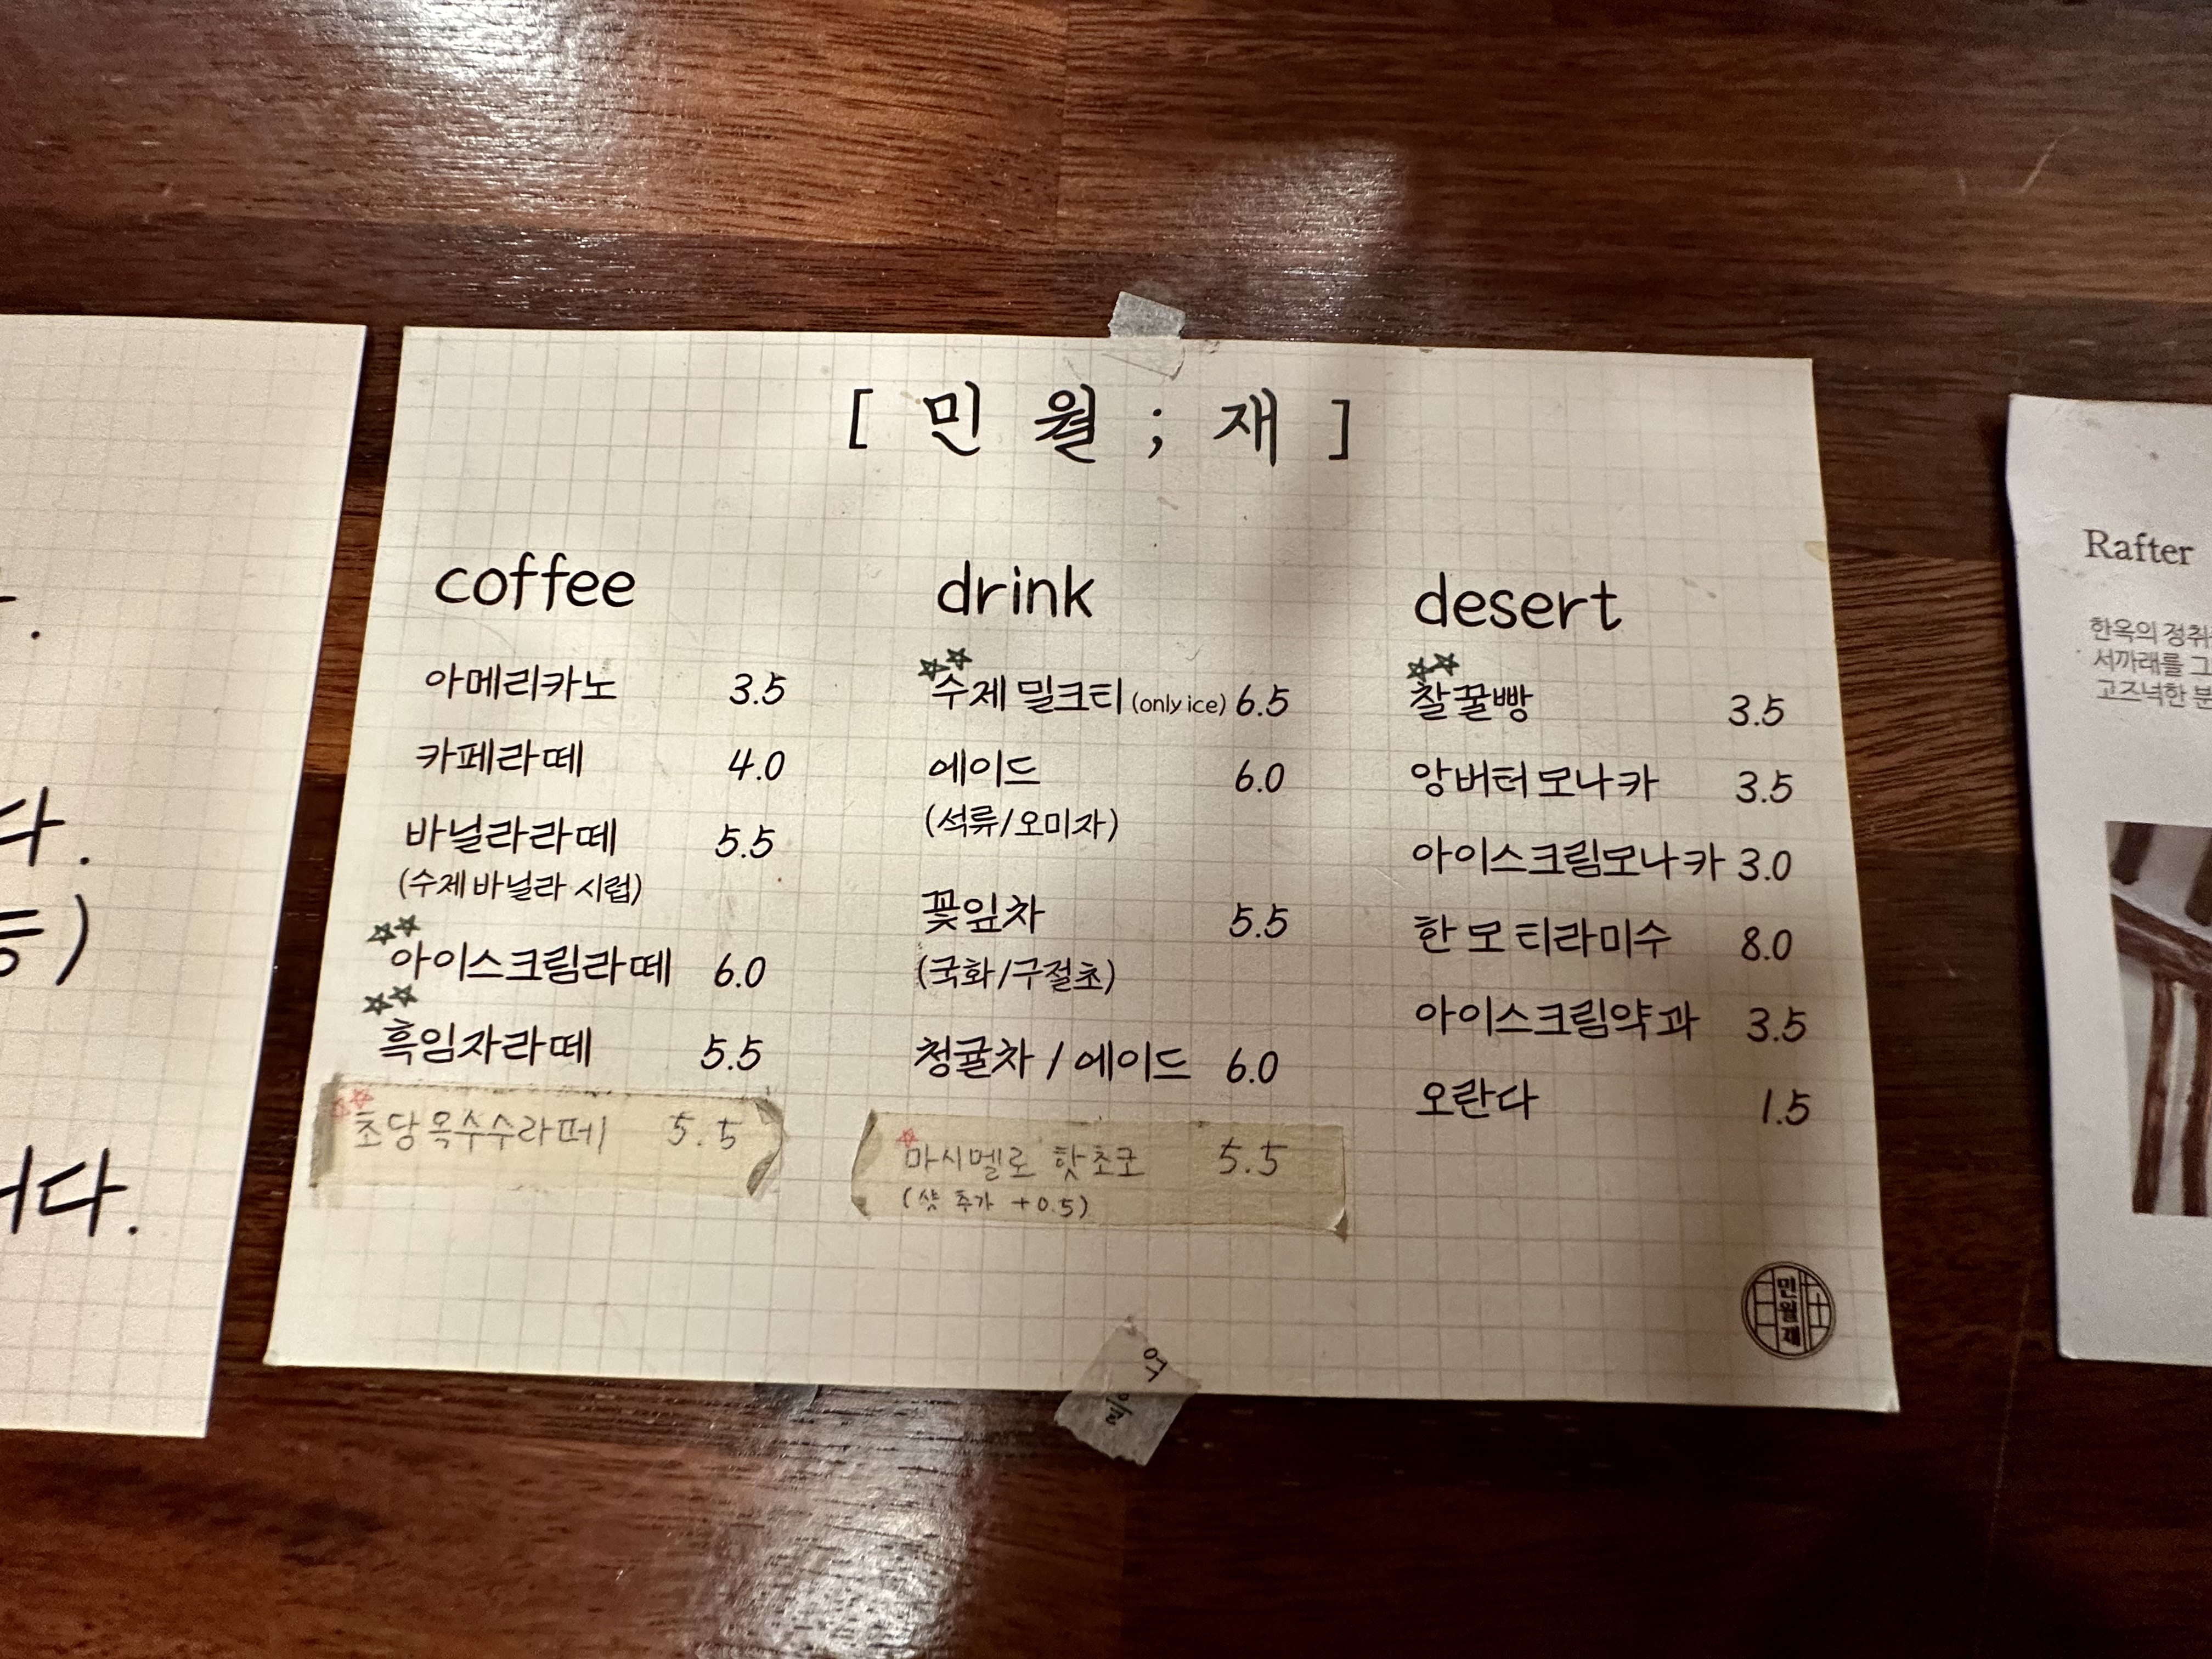 다.
등)
니다.
[ 민 월 ; 재 ]
coffee
아메리카노 3.5
카페라떼 4.0
바닐라라떼 5.5
(수제 바닐라 시럽)
아이스크림라떼 6.0
흑임자라떼 5.5
초당옥수수라떼 5.5
drink
수제 밀크티 (only ice) 6.5
에이드 6.0
(석류/오미자)
꽃잎차 5.5
(국화/구절초)
청귤차 / 에이드 6.0
마시멜로 핫초코 5.5
(샷 추가 +0.5)
desert
찰꿀빵 3.5
앙버터모나카 3.5
아이스크림모나카 3.0
한 모 티라미수 8.0
아이스크림약과 3.5
오란다 1.5
민월재
Rafter
한옥의 정취
서까래를 그
고즈넉한 분